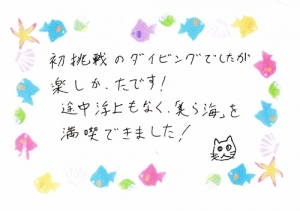 初挑戦のダイビングでしたが
楽しかったです!
途中浮上もなく、「美ら海」を
満喫できました!